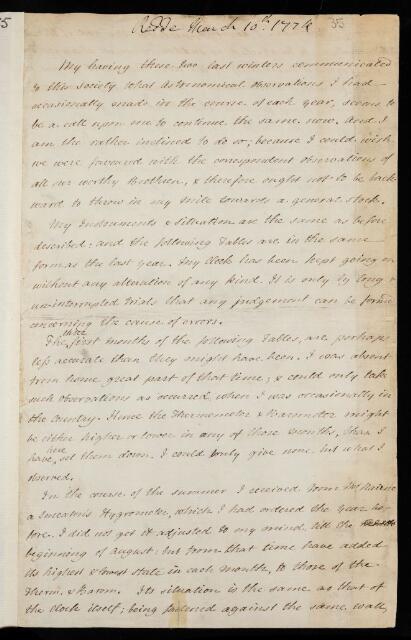 Redde March 10th. 1774
35
My having these two last winters communicated
to this Society what Astronomical observations I had
occasionally made in the course of each year, seems to
be a call upon me to continue the same now. And I
am the rather inclined to do so; because I could wish
we were favoured with the correspondent observations of
all our worthy Brethren, & therefore ought not to be back-
ward to throw in my mite towards a general stock.
My Instruments & situation are the same as before
described: and the following Tables are in the same
form as the last year. My Clock has been kept going on
without any alteration of any kind. It is only by long &
uninterrupted trials that any judgement can be formed
concerning the cause of errors.
The first three months of the following Tables, are perhaps
less accurate than they might have been. I was absent
from home great part of that time; & could only take
such observations as occurred when I was occasionally in
the country. Hence the Thermometer & Barometer might
be either higher or lower in any of those months, than I
have here set them down. I could truly give none but what I
observed.
In the course of the summer I received from Mr
a Smeatons Hygrometer, which I had ordered the year be-
fore. I did not get it adjusted to my mind till the
beginning of August: but from that time have added
its highest & lowest state in each month, to those of the
Therm. & Barom. Its situation is the same as that of
the clock itself; being fastened against the same wall,